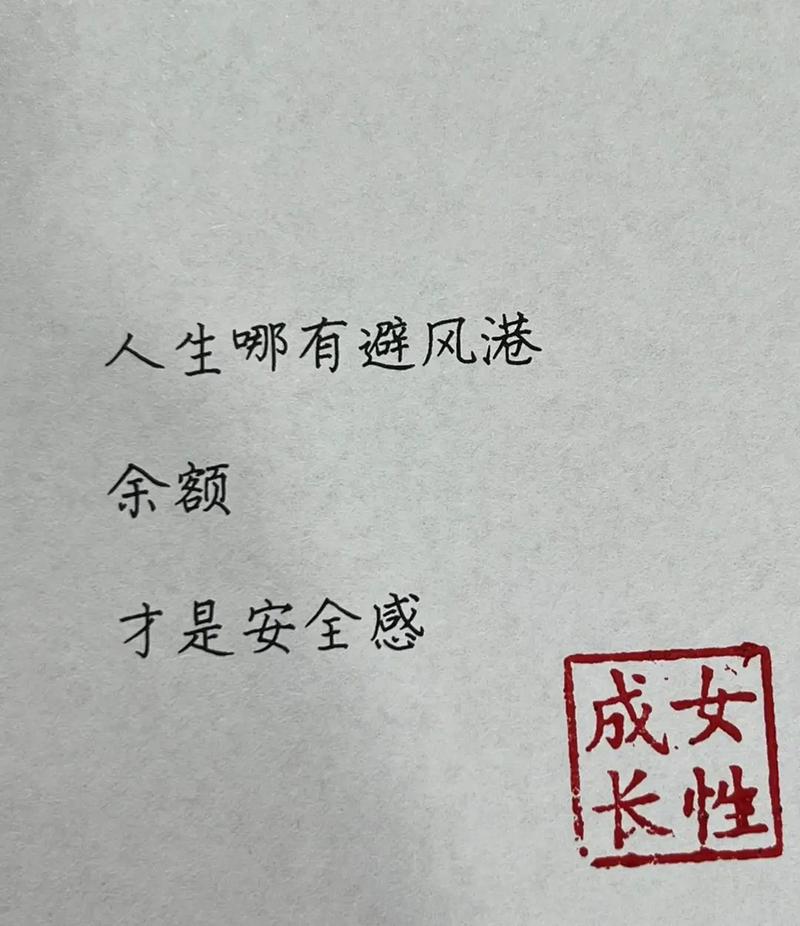 人生哪有避风港
余额
才是安全感
女性
成长